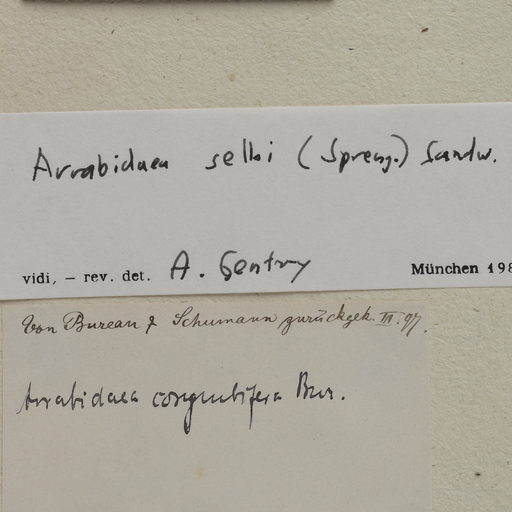 Arrabidaea selloi (Spreng.) Sandw.
vidi, – rev. det. A. Gentry München 198
Von Bureau & Schumann zurückgek. III. 97.
Arrabidaea corymbifera Bur.